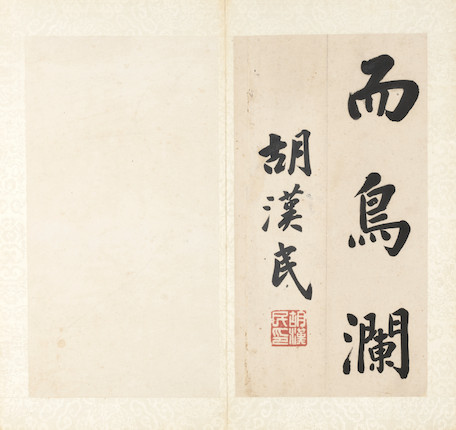 而鳥瀾
胡漢民
胡漢民印